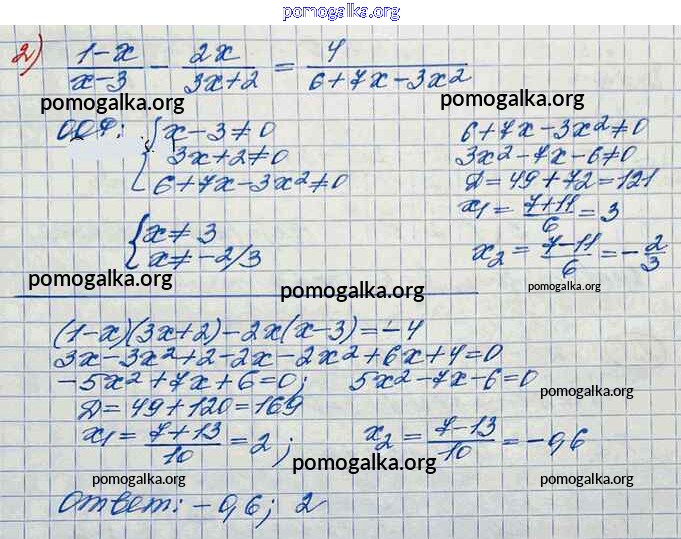 pomogalka.org
2) (1-x)/(x-3) - 2x/(3x+2) = 4/(6+7x-3x²)
pomogalka.org pomogalka.org
ООФ: { x-3≠0
3x+2≠0
6+7x-3x²≠0
{ x≠3
x≠-2/3
6+7x-3x²≠0
3x²-7x-6≠0
D=49+72=121
x₁=(7+11)/6=3
x₂=(7-11)/6=-2/3
pomogalka.org pomogalka.org pomogalka.org
(1-x)(3x+2)-2x(x-3)=-4
3x-3x²+2-2x-2x²+6x+4=0
-5x²+7x+6=0; 5x²-7x-6=0
pomogalka.org
D=49+120=169
x₁=(7+13)/10=2; x₂=(7-13)/10=-0,6
pomogalka.org pomogalka.org pomogalka.org
Ответ: -0,6; 2